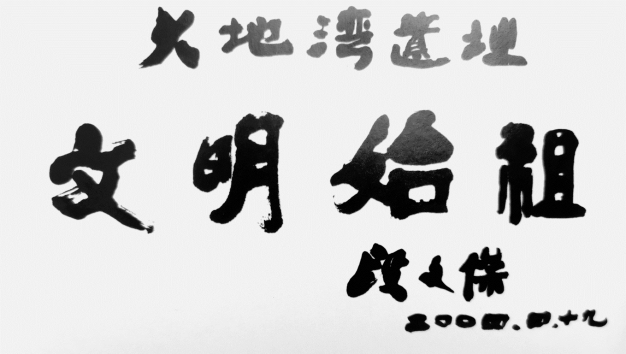 大地湾遺址
文明始祖
段文傑
二〇〇四.四.十九